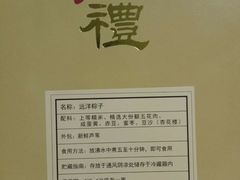 禮
名称：远洋粽子
配料：上等糯米、精选大份鲜五花肉、
咸蛋黄、赤豆、蜜枣、豆沙（杏花楼）
外包：新鲜芦苇
食用方法：放沸水中煮五至十分钟，即可食用
贮藏指南：存放于通风阴凉处储存于冷藏箱内